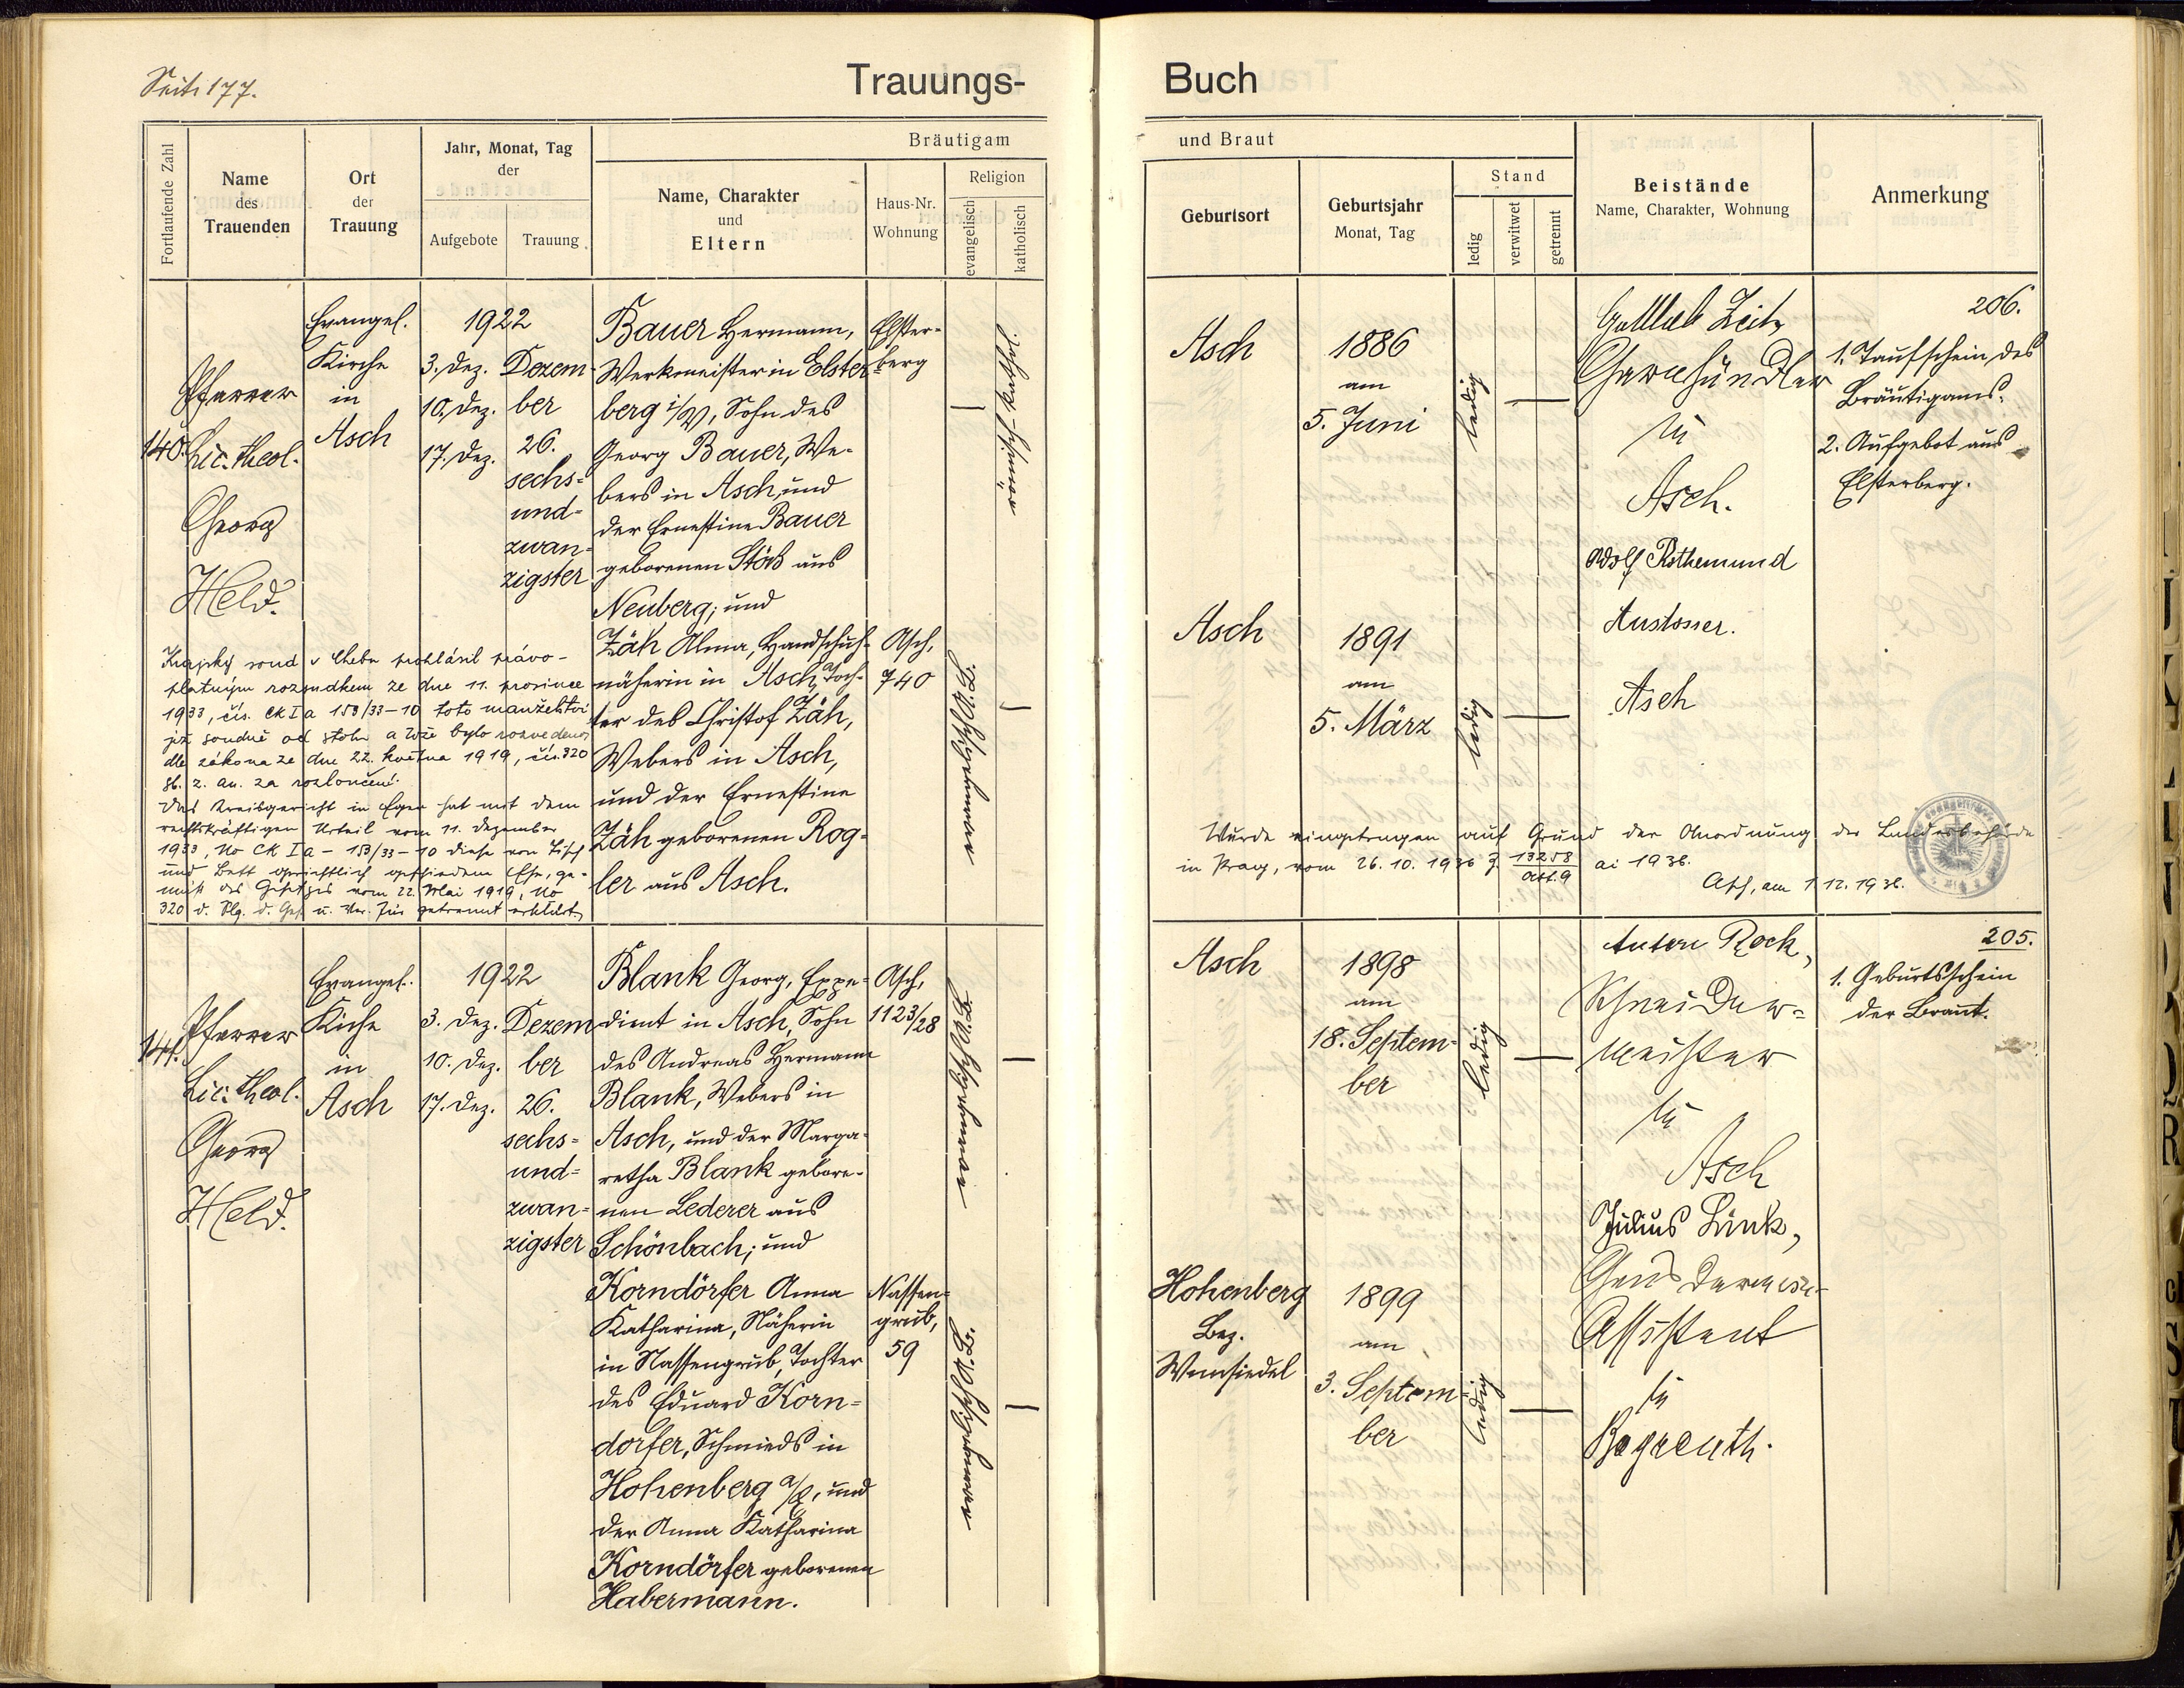 Seite 177.
Trauungs-
Buch
Fortlaufende Zahl
Name
des
Trauenden
Ort
der
Trauung
Jahr, Monat, Tag
der
Aufgebote
Trauung
Bräutigam
Name, Charakter
und
Eltern
Haus-Nr.
Wohnung
Religion
evangelisch
katholisch
und Braut
Geburtsort
Geburtsjahr
Monat, Tag
Stand
ledig
verwitwet
getrennt
Beistände
Name, Charakter, Wohnung
Anmerkung
140.
Pfarrer
Lic. theol.
Georg
Held.
Evangel.
Kirche
in
Asch
1922
3. Dez.
10. Dez.
17. Dez.
Dezem-
ber
26.
sechs-
und-
zwan-
zigster
Bauer Hermann,
Werkmeister in Elster-
berg i/V, Sohn des
Georg Bauer, We-
bers in Asch, und
der Ernestine Bauer
geborenen Stöß aus
Neuberg; und
Elster-
berg
Zäh Alma, Handschuh-
näherin in Asch, Toch-
ter des Christof Zäh,
Webers in Asch,
und der Ernestine
Zäh geborenen Rog-
ler aus Asch.
Asch,
740
Krajský soud v Chebu prohlásil právo-
platným rozsudkem ze dne 11. prosince
1933, čís. Ck I a 153/33-10 toto manželství
již soudně od stolu a lože bylo rozvedeno
dle zákona ze dne 22. května 1919, čís. 320
sb. z. a n. za rozloučené.
Das Kreisgericht in Eger hat mit dem
rechtskräftigen Urteil vom 11. Dezember
1933, No Ck I a - 153/33-10 diese von Tisch
und Bett gerichtlich geschiedene Ehe, ge-
mäß des Gesetzes vom 22. Mai 1919, No
320 d. Slg. d. Ges. u. Ver. für getrennt erklärt.
Asch
1886
am
5. Juni
ledig
Gottlieb Zeitz
Garnhändler
in
Asch.
Adolf Rothemund
Asch
206.
1. Taufschein des
Bräutigams.
2. Aufgebot aus
Elsterberg.
Asch
1891
am
5. März
ledig
Wurde eingetragen auf Grund der Anordnung der Landesbehörde
in Prag, vom 26.10.1936 Z. 13258 ai 1936.
Abt. 9
Asch, am 1.12.1936.
141.
Pfarrer
Lic. theol.
Georg
Held.
Evangel.
Kirche
in
Asch
1922
3. Dez.
10. Dez.
17. Dez.
Dezem
ber
26.
sechs-
und-
zwan-
zigster
Blank Georg, Expe-
dient in Asch, Sohn
des Andreas Hermann
Blank, Webers in
Asch, und der Marga-
retha Blank gebore-
nen Lederer aus
Schönbach; und
Asch,
1123/28
Korndörfer Anna
Katharina, Näherin
in Nassengrub, Tochter
des Eduard Korn-
dorfer, Schmieds in
Hohenberg a/E, und
der Anna Katharina
Korndörfer geborenen
Habermann.
Nassen-
grub,
59
Asch
1898
am
18. Septem-
ber
ledig
Anton Rock,
Schneider-
meister
in
Asch
Julius Link,
Gendarmerie-
Assistent
in
Bayreuth.
205.
1. Geburtsschein
der Braut.
Hohenberg
Bez.
Wunsiedel
1899
am
3. Septem-
ber
ledig